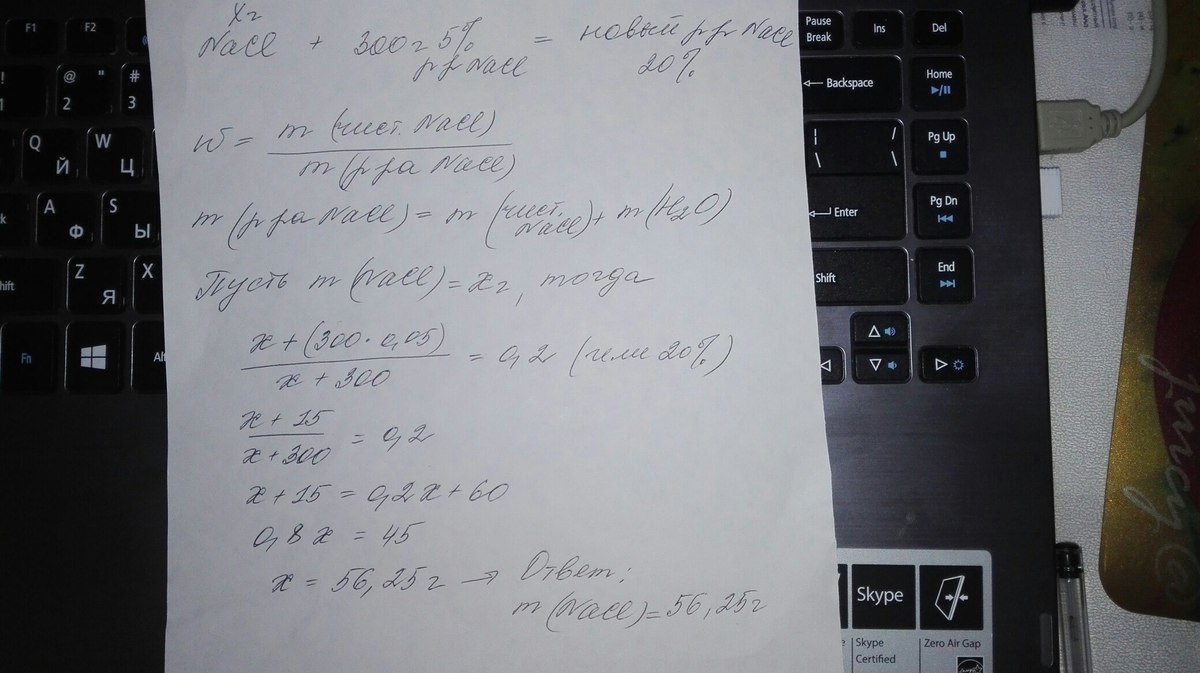 x г
NaCl + 300 г 5% = новый р р NaCl
р р NaCl 20%
ω = m (чист. NaCl)
m (р ра NaCl)
m (р ра NaCl) = m (чист. NaCl) + m (H₂O)
Пусть m (NaCl) = x г, тогда
x + (300 · 0,05) = 0,2 (или 20%)
x + 300
x + 15 = 0,2
x + 300
x + 15 = 0,2x + 60
0,8 x = 45
x = 56,25 г → Ответ:
m (NaCl) = 56,25 г
F1 F2
! @ " #
1 2 3
Q Й W Ц
A Ф S Ы
Z Я X
Shift
Fn Alt
Pause Break Ins Del
Backspace Home
Pg Up
Enter Pg Dn
Shift End
Skype
Skype Certified
Zero Air Gap